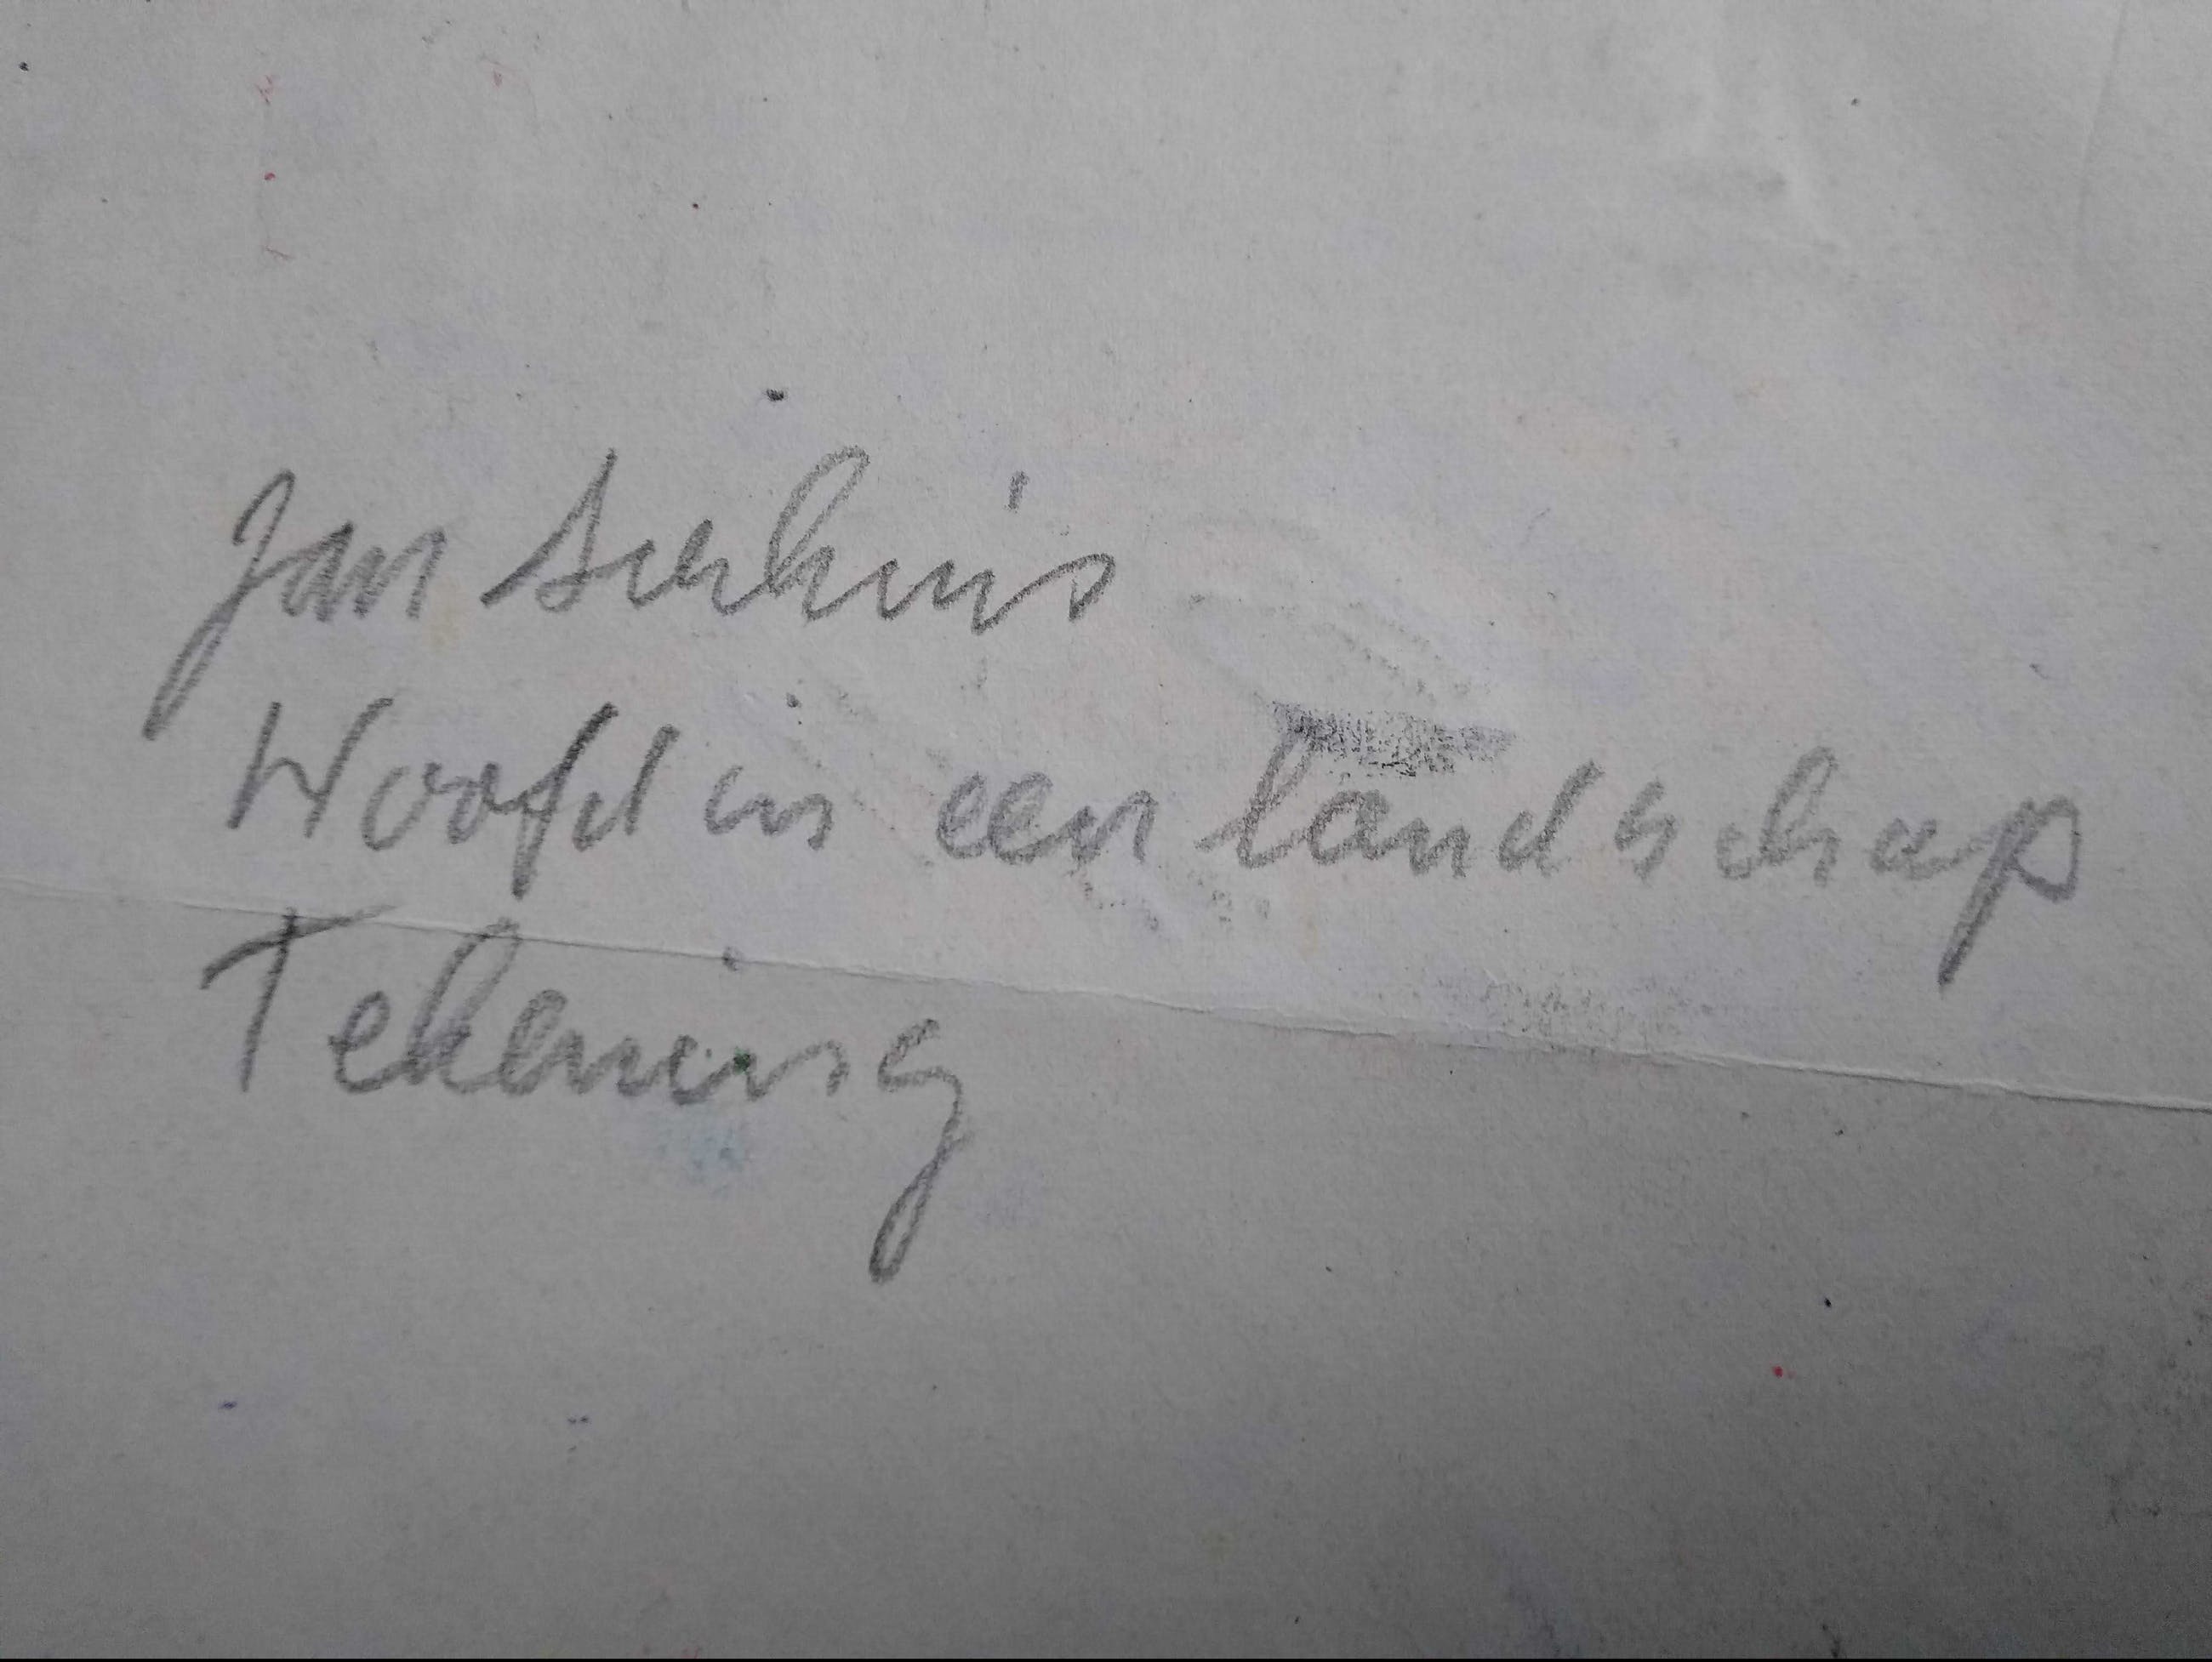 Jan Sierhuis
Hoofd in een landschap
Tekening